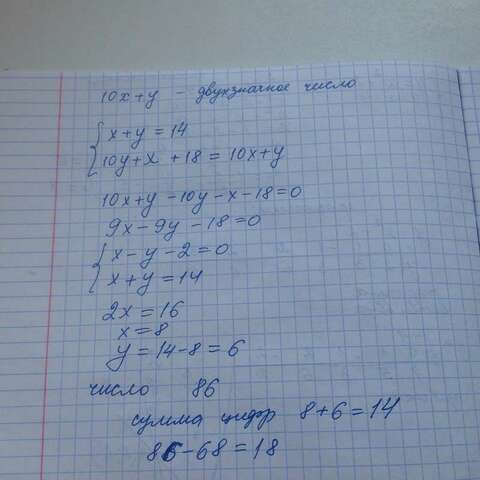 10x+y - двухзначное число
x+y=14
10y+x+18=10x+y
10x+y-10y-x-18=0
9x-9y-18=0
x-y-2=0
x+y=14
2x=16
x=8
y=14-8=6
число 86
сумма цифр 8+6=14
86-68=18